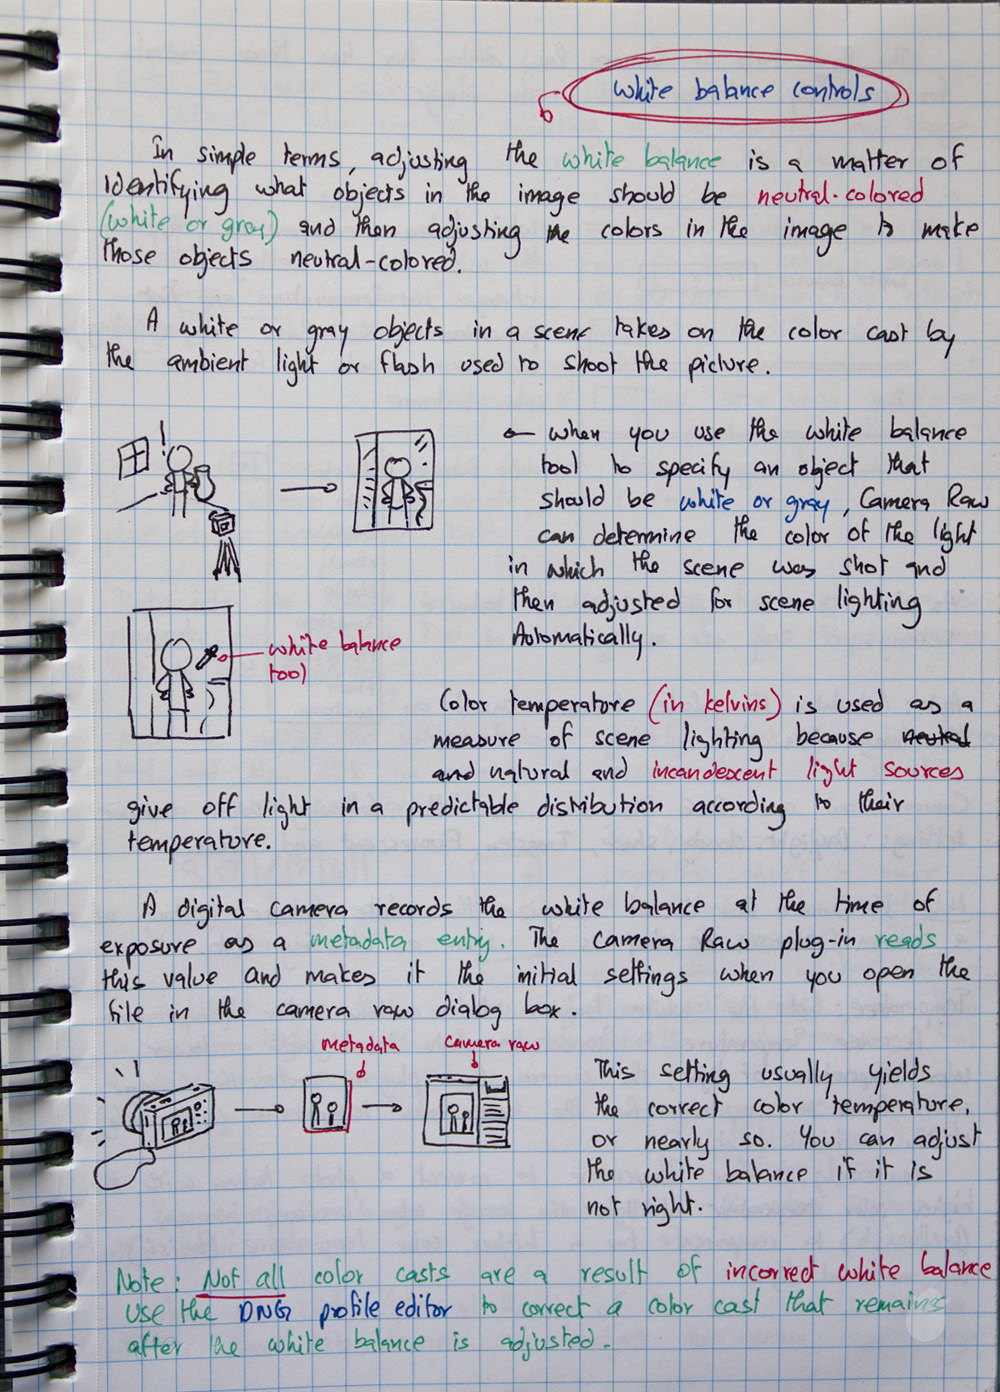 white balance controls
In simple terms, adjusting the white balance is a matter of
Identifying what objects in the image should be neutral-colored
(white or gray) and then adjusting the colors in the image to make
those objects neutral-colored.
A white or gray objects in a scene takes on the color cast by
the ambient light or flash used to shoot the picture.
← when you use the white balance
tool to specify an object that
should be white or gray, Camera Raw
can determine the color of the light
in which the scene was shot and
then adjusted for scene lighting
Automatically.
white balance
tool
Color temperature (in kelvins) is used as a
measure of scene lighting because neutral
and natural and incandescent light sources
give off light in a predictable distribution according to their
temperature.
A digital camera records the white balance at the time of
exposure as a metadata entry. The camera Raw plug-in reads
this value and makes it the initial settings when you open the
file in the camera raw dialog box.
metadata
camera raw
This setting usually yields
the correct color temperature,
or nearly so. You can adjust
the white balance if it is
not right.
Note: Not all color casts are a result of incorrect white balance
Use the DNG profile editor to correct a color cast that remains
after the white balance is adjusted.